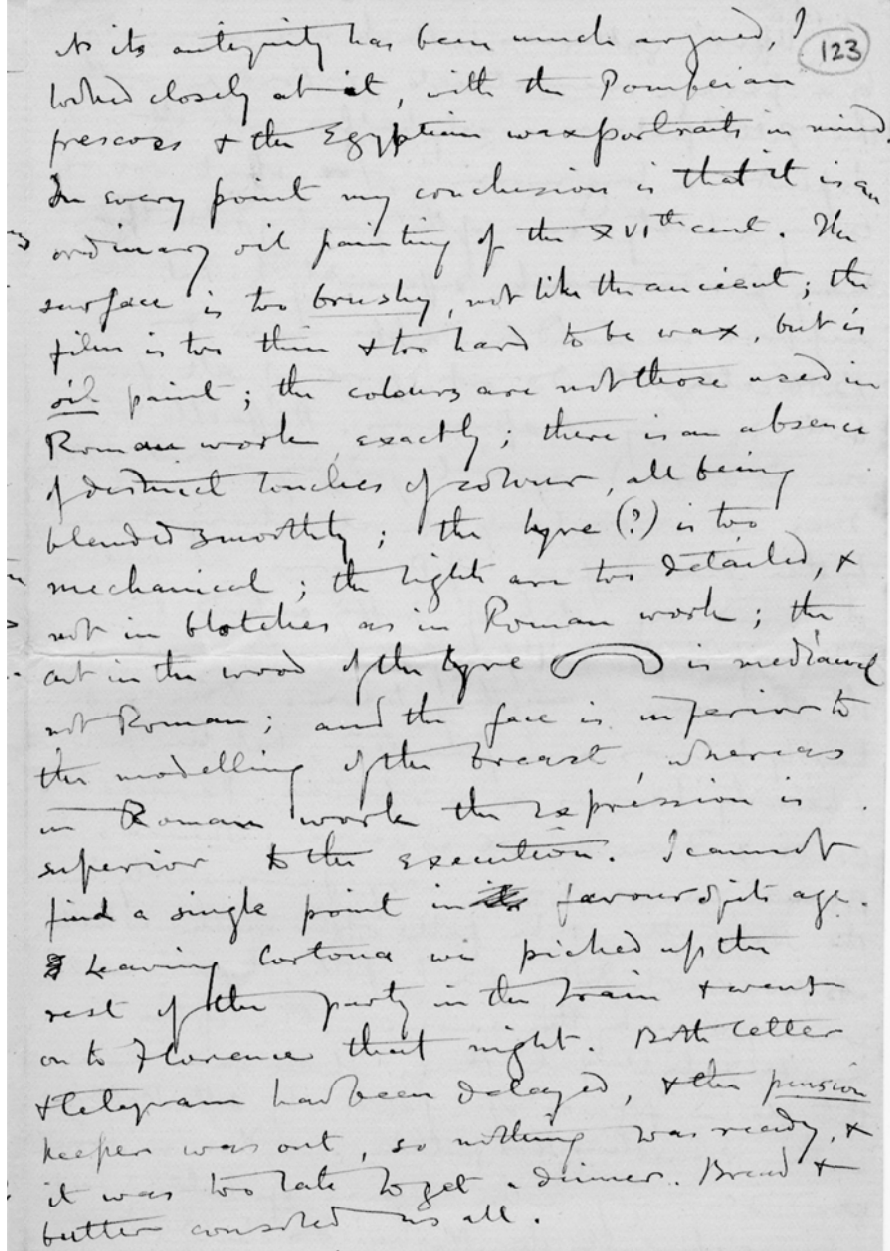 As its antiquity has been much argued, I
123
looked closely at it, with the Pompeian
frescoes & the Egyptian wax portraits in mind.
In every point my conclusion is that it is an
ordinary oil painting of the XVIth cent. The
surface is too brushy, not like the ancient; the
film is too thin & too hard to be wax, but is
oil paint; the colours are not those used in
Roman work exactly; there is an absence
of distinct touches of colour, all being
blended smoothly; the lyre (?) is too
mechanical; the lights are too detailed, &
not in blotches as in Roman work; the
cut in the wood of the lyre is mediaeval
not Roman; and the face is inferior to
the modelling of the breast, whereas
in Roman work the expression is
superior to the execution. I cannot
find a single point in favour of its age.
Leaving Cortona we picked up the
rest of the party in the train & went
on to Florence that night. Both letter
& telegram had been delayed, & the pension
keeper was out, so nothing was ready, &
it was too late to get a dinner. Bread &
butter consoled us all.